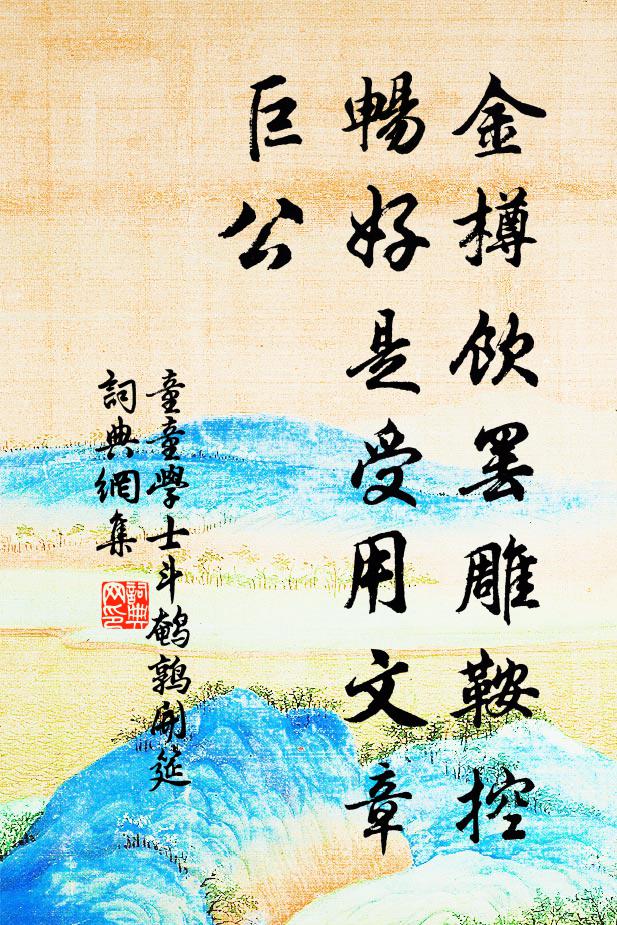 金樽飲罷雕鞍控
暢好是受用文章
巨公
童童學士斗鵪鶉開筵
詞典網集
詞典
网印